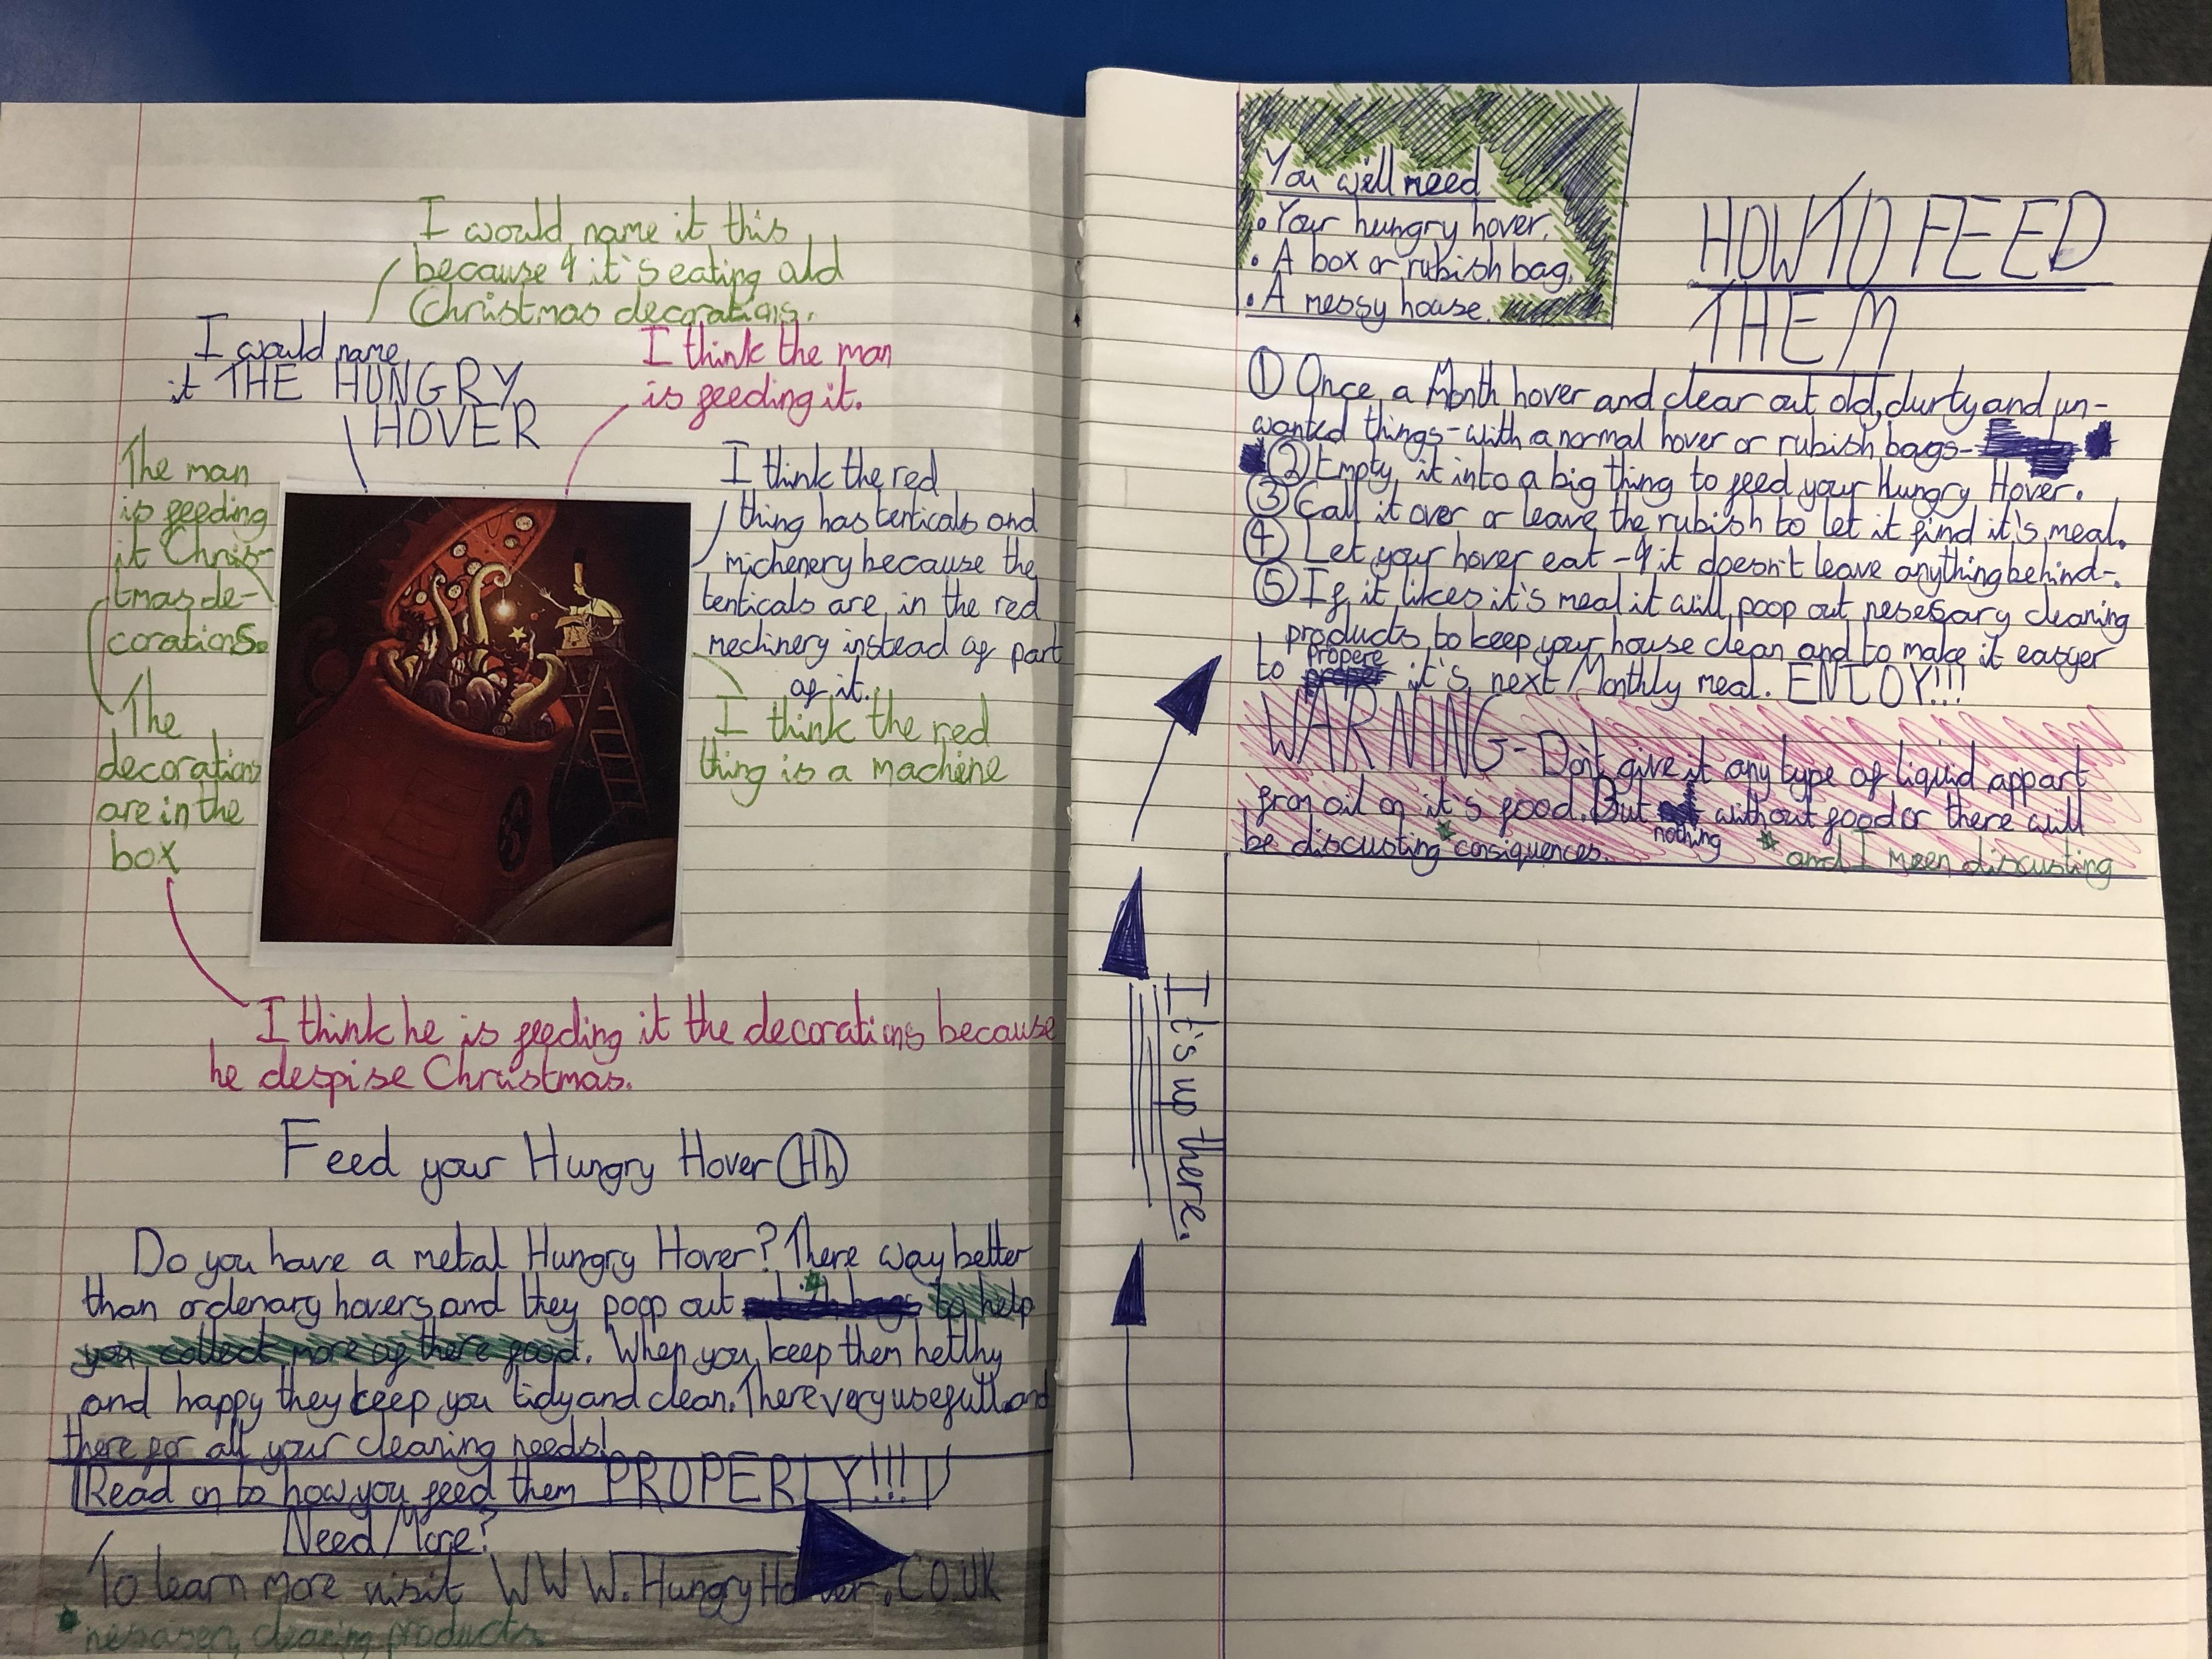 I would name it this
because & it's eating old
Christmas decorations.
I would name
it THE HUNGRY
HOVER
I think the man
is feeding it.
The man
is feeding
it Chris-
tmas de-
corations.
The
decorations
are in the
box
I think the red
thing has tenticals and
michenery because the
tenticals are in the red
mechinery instead of part
of it.
I think the red
thing is a machine
I think he is feeding it the decorations because
he despise Christmas.
Feed your Hungry Hover (Hh)
Do you have a metal Hungry Hover? There way better
than ordenary hovers and they poop out * to help
you collect more of there food. When you keep them helthy
and happy they keep you tidy and clean. There very usefull and
there for all your cleaning needs!
Read on to how you feed them PROPERLY!!!
Need More?
To learn more visit WWW.HungryHover.CO.UK
* nesasery cleaning products.
You will need
• Your hungry hover.
• A box or rubish bag.
• A messy house.
HOW TO FEED
THEM
① Once a Month hover and clear out old, durty and un-
wanted things - with a normal hover or rubish bags -
② Empty it into a big thing to feed your Hungry Hover.
③ Call it over or leave the rubish to let it find it's meal.
④ Let your hover eat - & it doesn't leave anything behind -.
⑤ If it likes it's meal it will poop out nesesary cleaning
products to keep your house clean and to make it easyer
to propere it's next Monthly meal. ENJOY!!!
WARNING - Don't give it any type of liquid appart
from oil on it's food. But nothing without food or there will
be discusting * consiquences. * and I meen discusting
It's up there.